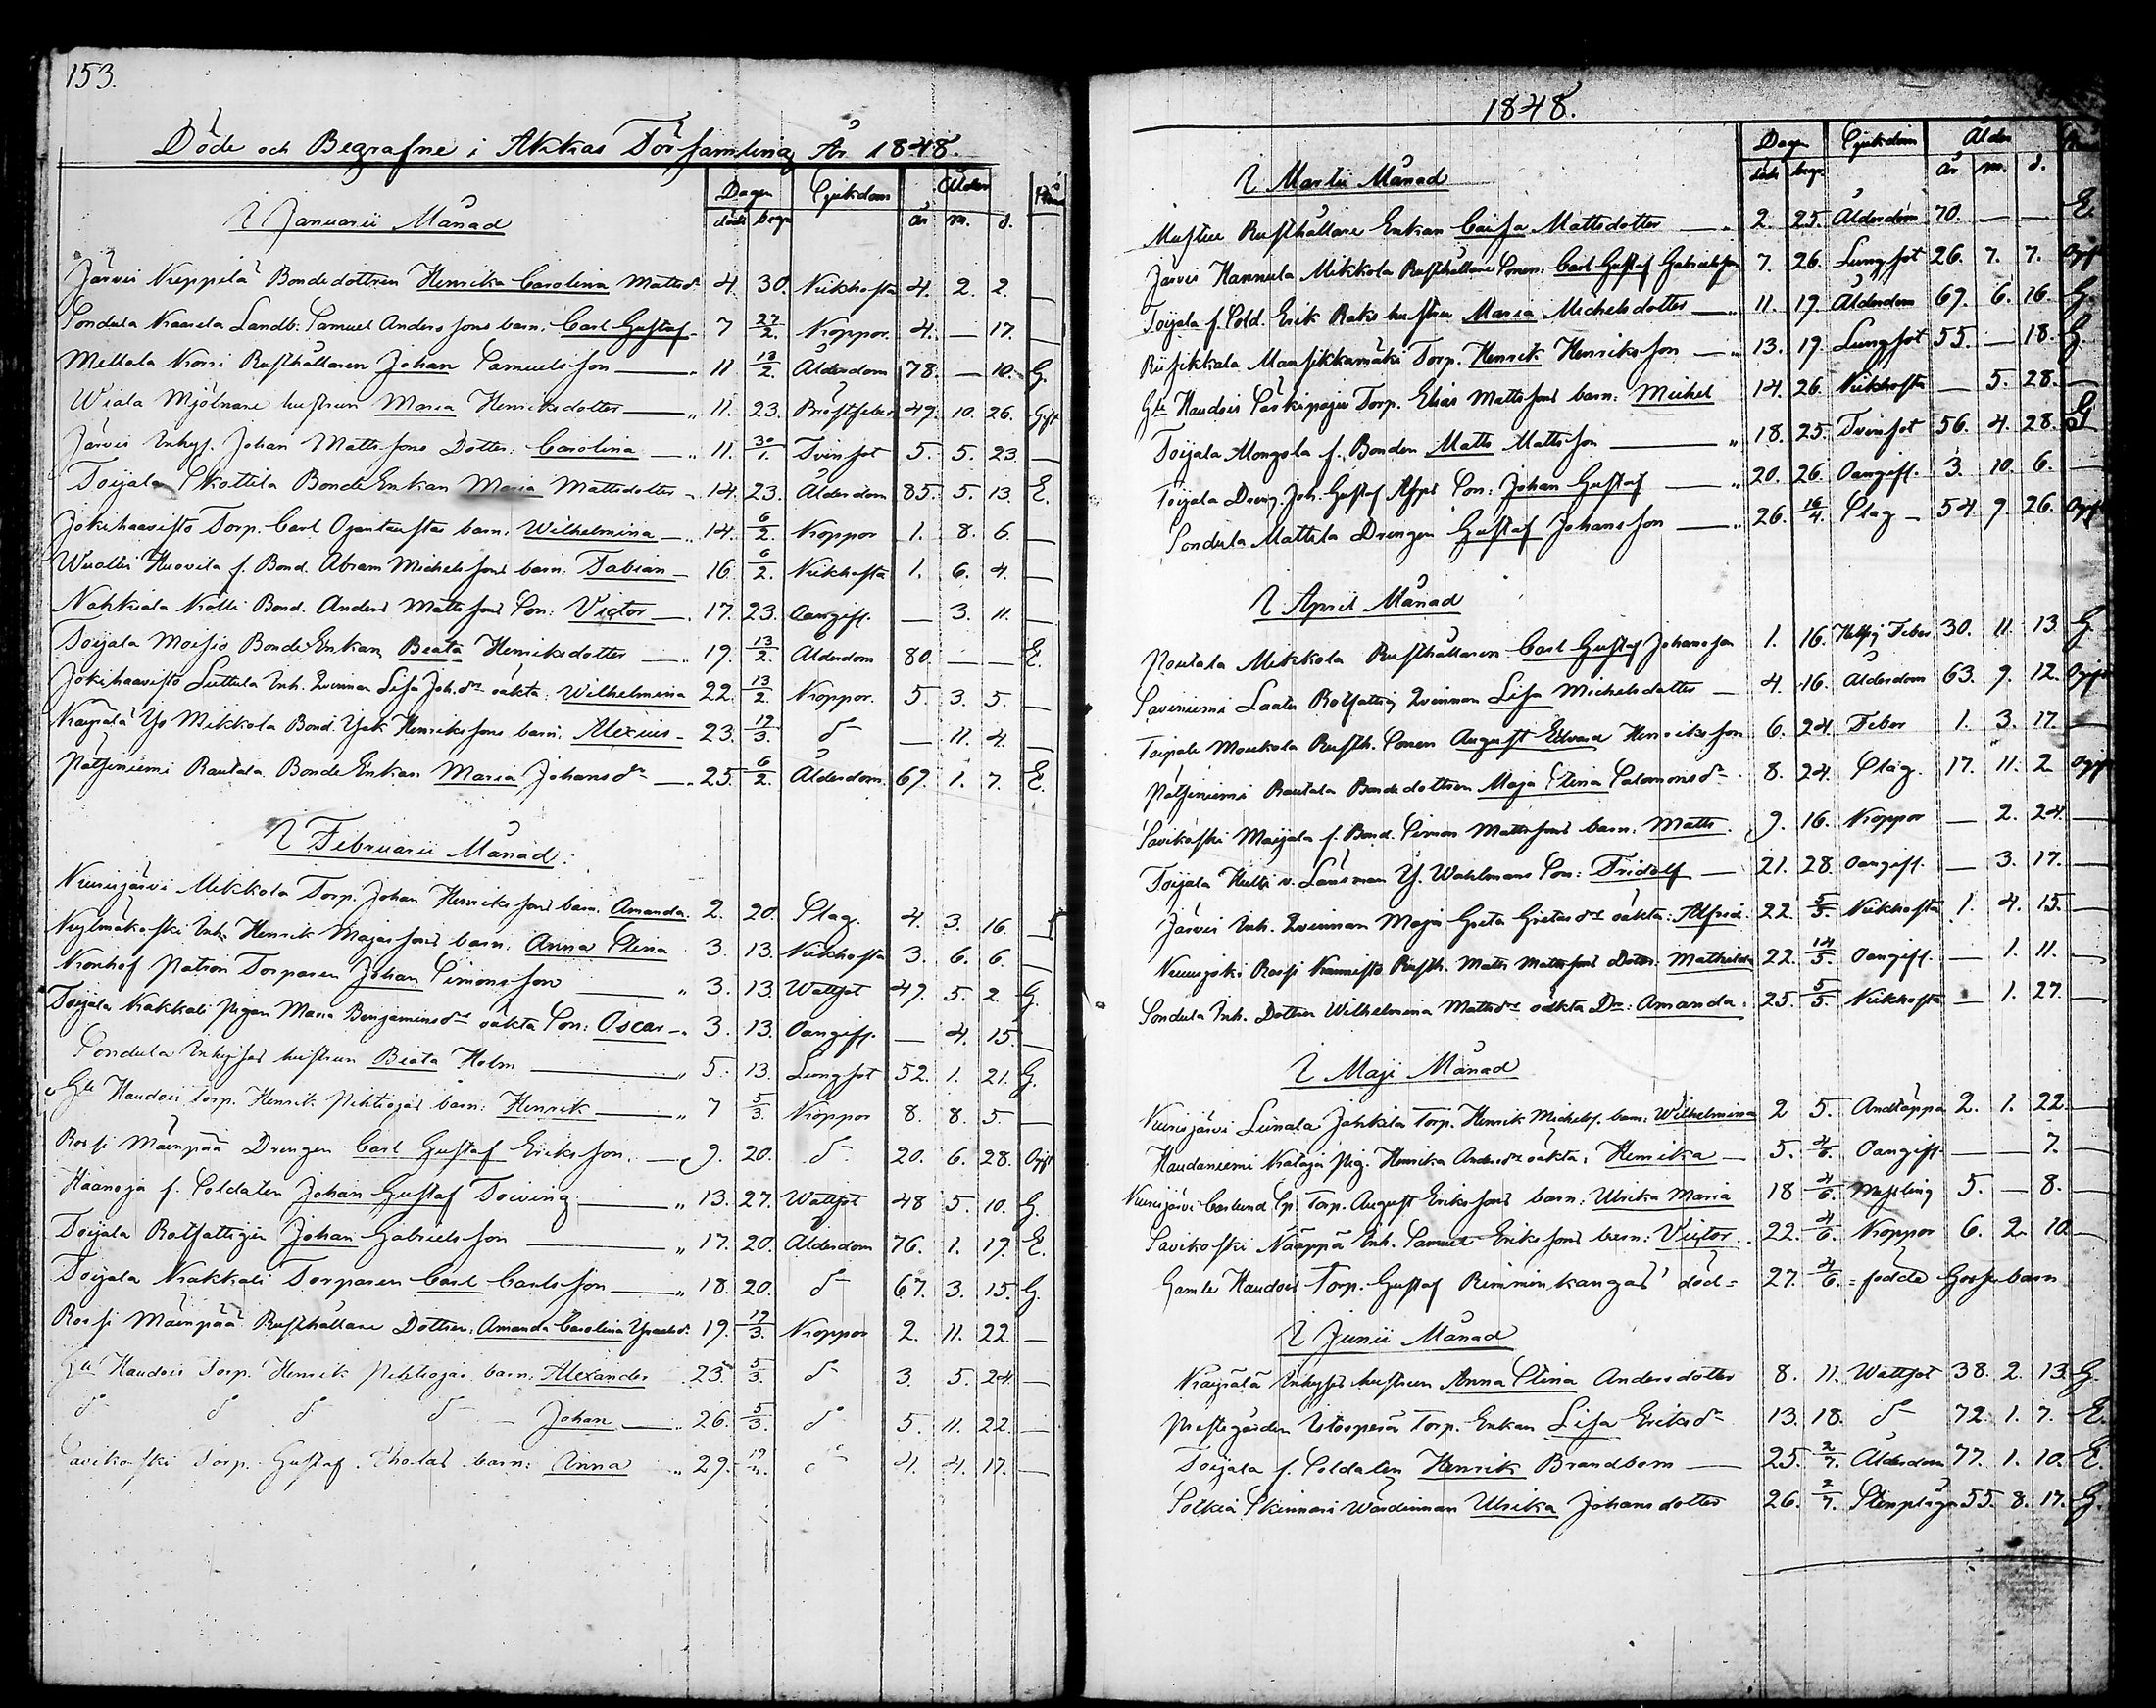 153.
Döde och Begrafne i Akkas Församling År 1848.
Dagen Sjukdom Ålder
död begr. år m. d.
I Januarii Månad
Järvis Neppilä Bondedottren Henrika Carolina Mattsdr 4. 30. Kikhosta 4. 2. 2. —
Sondula Kaarela Landb. Samuel Anders sons barn: Carl Gustaf 7 27/2. Koppor. 4. — 17. —
Mellola Korri Rusthållaren Johan Samuelsson — 11 13/2. Ålderdom 78. — 10. G.
Wiala Mjölnare hustrun Maria Henriksdotter — 11. 23. Bröstfeber 49. 10. 26. Gift
Järvis Inhys. Johan Mattssons Dotter: Carolina — 11. 30/1. Tvinsot 5. 5. 23. —
Toijala Skottila Bonde Enkan Maria Mattsdotter 14. 23. Ålderdom 85. 5. 13. E.
Jokihaavisto Torp. Carl Ojantaustas barn: Wilhelmina — 14. 6/2. Koppor 1. 8. 6. —
Huovila f. Bond. Abram Michelssons barn: Fabian — 16. 6/2. Kikhosta 1. 6. 4. —
Nahkiala Kölli Bond. Anders Mattssons Son: Victor — 17. 23. Oangift. — 3. 11. —
Toijala Moisio Bonde Enkan Beata Henriksdotter — 19. 13/2. Ålderdom 80. — — E.
Jokihaavisto Luttula Inh. Qvinnan Lisa Joh.dr oäkta: Wilhelmina 22. 13/2. Koppor. 5. 3. 5. —
Yli Mikkola Bond. Isak Henrikssons barn: Alexius — 23. 19/3. do — 11. 4. —
Pätsiniemi Rautala Bonde Enkan Maria Johansdr — 25. 6/2. Ålderdom. 67. 1. 7. E.
I Februarii Månad:
Kurisjärvi Mikkola Torp. Johan Henrikssons barn. Amanda 2. 20. Slag. 4. 3. 16. —
Kylmäkoski Inh. Henrik Majassons barn: Anna Stina 3. 13. Kikhosta 3. 6. 6. —
Kronhof Patron Torparen Johan Simonsson — 3. 13. Wattsot 47. 5. 2. G.
Toijala Kakkali Pigan Maria Benjaminsdrs oäkta Son: Oscar — 3. 13. Oangift. — 4. 15. —
Sondula Inhyses hustrun Beata Holm — 5. 13. Lungsot 52. 1. 21. G.
Gle Haudois Torp. Henrik Pihtiojas barn: Henrik — 7 5/3. Koppor 8. 8. 5. —
Rossi Mäenpää Drengen Carl Gustaf Eriksson — 9. 20. do 20. 6. 28. Ogift
Häänoja f. Soldaten Johan Gustaf Toiving — 13. 27. Wattsot 48 5. 10. G.
Toijala Rotfattigen Johan Gabrielsson — 17. 20. Ålderdom 76. 1. 19. E.
Toijala Kakkali Torparen Carl Carlsson — 18. 20. do 67. 3. 15. G.
Rossi Mäenpää Rusthållare Dottren: Amanda Carolina Isaksdr. 19. 19/3. Koppor 2. 11. 22. —
Gle Haudois Torp. Henrik Pihtiojas barn: Alexander 23. 5/3. do 3. 5. 24. —
do do do do — Johan — 26. 5/3. do 5. 11. 22. —
Savikoski Torp. Gustaf barn: Anna 29. 19/3. do 4. 4. 17. —
1848.
Dagen Sjukdom Ålder
död begr. år m. d.
I Martii Månad
Rusthållare Enkan Caisa Mattsdotter — 2. 25. Ålderdom 70. — — E.
Järvis Hannula Mikkola Rusthållare Sonen: Carl Gustaf Gabrielsson 7. 26. Lungsot 26. 7. 7. Ogift
Toijala f. Sold. Erik Raks hustru Maria Michelsdotter — 11. 19. Ålderdom 69. 6. 16. G.
Riisikkala Mansikkamäki Torp. Henrik Henriksson — 13. 19. Lungsot 55. — 18. G.
Gle Haudois Torp. Elias Mattssons barn: Michel 14. 26. Kikhosta — 5. 28. —
Toijala Mongola f. Bonden Matts Mattsson — 18. 25. Tvinsot 56. 4. 28. G
Toijala Dreng Joh. Gustaf Son: Johan Gustaf — 20. 26. Oangift. 3. 10. 6. —
Sondula Mattila Drengen Gustaf Johansson — 26. 16/4. Slag — 54 9. 26. Ogift
I April Månad
Mikkola Rusthållaren Carl Gustaf Johansson 1. 16. Hetsig Feber 30. 11. 13. G.
Saviniemi Laati Rotfattig Qvinnan Lisa Michelsdotter — 4. 16. Ålderdom 63. 9. 12. Ogift
Taipale Moukola Rusth. Sonen August Edvard Henriksson 6. 24 Feber 1. 3. 17. —
Pätsiniemi Rautala Bonde dottren Maja Stina Salomonsdr 8. 24. Slag. 17. 11. 2 Ogift
Savikoski Maijala f. Bond. Simon Mattssons barn: Matts. 9. 16. Koppor — 2. 24. —
Toijala Hulti v. Länsman Y. Wahlmans Son: Fridolf — 21. 28. oangift. — 3. 17. —
Järvis Inh. Qvinnan Maja Greta Gretasdrs oäkta: Alfred. 22. 5/5. Kikhosta 1. 4. 15. —
Rossi Kannisto Rusth. Matts Mattssons Dotter: Mathilda 22. 14/5. Oangift. — 1. 11. —
Sondula Inh. Dottren Wilhelmina Mattsdrs oäkta Dr: Amanda. 25. 5/5. Kikhosta — 1. 27. —
I Maji Månad
Kurisjärvi Liinala Jahkila Torp. Henrik Michelss. barn: Wilhelmina 2 5. Andtäppa 2. 1. 22 —
Haudaniemi Kataja Pig. Henrika Andersdrs oäkta: Henrika — 5. 4/6. Oangift — — 7. —
Kurisjärvi Torp. August Erikssons barn: Ulrika Maria 18 4/6. Messling 5. — 8. —
Savikoski Nääppä Inh. Samuel Erikssons barn: Victor. 22. 4/6. Koppor 6. 2. 10. —
Gamle Haudois Torp. Gustaf Rimminkangas' död= 27. 4/6. =födde Gosse barn
I Junii Månad
Inhyses hustrun Anna Stina Andersdotter 8. 11. Wattsot 38. 2. 13. G.
Prestgården Torp. Enkan Lisa Eriksdr 13. 18. do 72. 1. 7. E.
Toijala f. Soldaten Henrik Brandbom — 25. 2/7. Ålderdom 77. 1. 10. E.
Sotkia Skinnari Wärdinnan Ulrika Johansdotter 26. 2/7. Stenplåga 55. 8. 17. G.